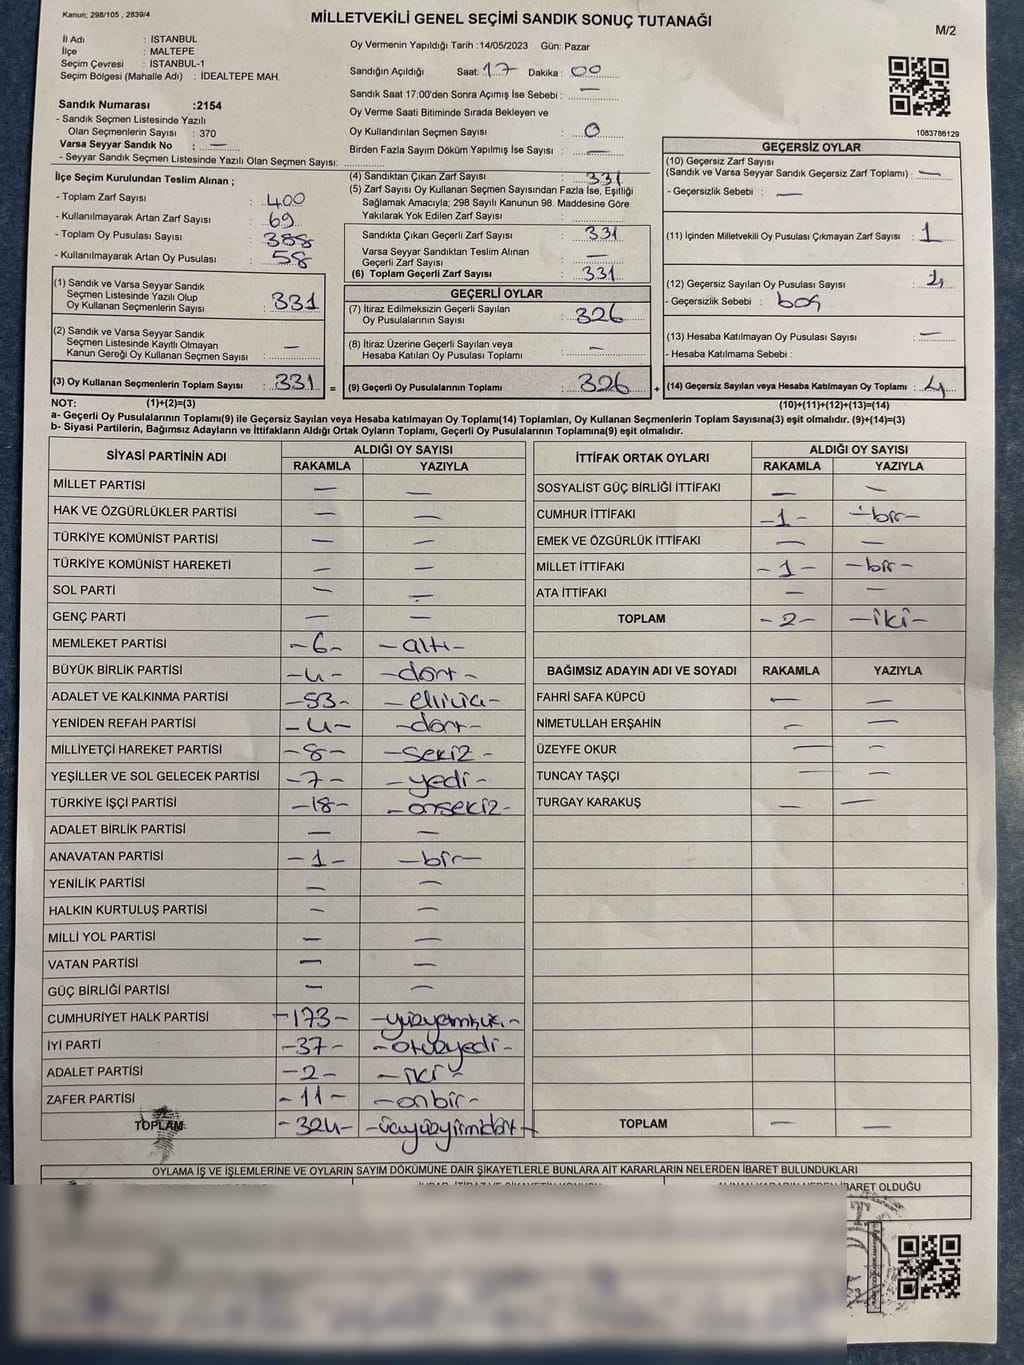 Kanun; 298/105 , 2839/4
MİLLETVEKİLİ GENEL SEÇİMİ SANDIK SONUÇ TUTANAĞI
M/2
İl Adı : İSTANBUL
İlçe : MALTEPE
Seçim Çevresi : İSTANBUL-1
Seçim Bölgesi (Mahalle Adı) : İDEALTEPE MAH.
Oy Vermenin Yapıldığı Tarih :14/05/2023 Gün: Pazar
Sandığın Açıldığı Saat: 17 Dakika : 00
Sandık Saat 17:00'den Sonra Açımış İse Sebebi : —
Oy Verme Saati Bitiminde Sırada Bekleyen ve
Oy Kullandırılan Seçmen Sayısı : 0
Birden Fazla Sayım Döküm Yapılmış İse Sayısı : —
1083786129
Sandık Numarası :2154
- Sandık Seçmen Listesinde Yazılı
Olan Seçmenlerin Sayısı : 370
Varsa Seyyar Sandık No : —
- Seyyar Sandık Seçmen Listesinde Yazılı Olan Seçmen Sayısı:
İlçe Seçim Kurulundan Teslim Alınan ;
- Toplam Zarf Sayısı : 400
- Kullanılmayarak Artan Zarf Sayısı : 69
- Toplam Oy Pusulası Sayısı : 388
- Kullanılmayarak Artan Oy Pusulası : 58
(1) Sandık ve Varsa Seyyar Sandık
Seçmen Listesinde Yazılı Olup
Oy Kullanan Seçmenlerin Sayısı : 331
(2) Sandık ve Varsa Seyyar Sandık
Seçmen Listesinde Kayıtlı Olmayan
Kanun Gereği Oy Kullanan Seçmen Sayısı : —
(3) Oy Kullanan Seçmenlerin Toplam Sayısı : 331 =
(4) Sandıktan Çıkan Zarf Sayısı : 331
(5) Zarf Sayısı Oy Kullanan Seçmen Sayısından Fazla İse, Eşitliği
Sağlamak Amacıyla; 298 Sayılı Kanunun 98. Maddesine Göre
Yakılarak Yok Edilen Zarf Sayısı :
Sandıkta Çıkan Geçerli Zarf Sayısı : 331
Varsa Seyyar Sandıktan Teslim Alınan
Geçerli Zarf Sayısı : —
(6) Toplam Geçerli Zarf Sayısı : 331
GEÇERLİ OYLAR
(7) İtiraz Edilmeksizin Geçerli Sayılan
Oy Pusulalarının Sayısı : 326
(8) İtiraz Üzerine Geçerli Sayılan veya
Hesaba Katılan Oy Pusulası Toplamı : —
(9) Geçerli Oy Pusulalarının Toplamı : 326 +
GEÇERSİZ OYLAR
(10) Geçersiz Zarf Sayısı
(Sandık ve Varsa Seyyar Sandık Geçersiz Zarf Toplamı) : —
- Geçersizlik Sebebi : —
(11) İçinden Milletvekili Oy Pusulası Çıkmayan Zarf Sayısı : 1
(12) Geçersiz Sayılan Oy Pusulası Sayısı :
- Geçersizlik Sebebi : boş
(13) Hesaba Katılmayan Oy Pusulası Sayısı : —
- Hesaba Katılmama Sebebi :
(14) Geçersiz Sayılan veya Hesaba Katılmayan Oy Toplamı : 4
NOT: (1)+(2)=(3) (10)+(11)+(12)+(13)=(14)
a- Geçerli Oy Pusulalarının Toplamı(9) ile Geçersiz Sayılan veya Hesaba katılmayan Oy Toplamı(14) Toplamları, Oy Kullanan Seçmenlerin Toplam Sayısına(3) eşit olmalıdır. (9)+(14)=(3)
b- Siyasi Partilerin, Bağımsız Adayların ve İttifakların Aldığı Ortak Oyların Toplamı, Geçerli Oy Pusulalarının Toplamına(9) eşit olmalıdır.
SİYASİ PARTİNİN ADI ALDIĞI OY SAYISI
RAKAMLA YAZIYLA
MİLLET PARTİSİ — —
HAK VE ÖZGÜRLÜKLER PARTİSİ — —
TÜRKİYE KOMÜNİST PARTİSİ — —
TÜRKİYE KOMÜNİST HAREKETİ — —
SOL PARTİ — —
GENÇ PARTİ — —
MEMLEKET PARTİSİ -6- -altı-
BÜYÜK BİRLİK PARTİSİ -4- -dört-
ADALET VE KALKINMA PARTİSİ -53- -elliüç-
YENİDEN REFAH PARTİSİ -4- -dört-
MİLLİYETÇİ HAREKET PARTİSİ -8- -sekiz-
YEŞİLLER VE SOL GELECEK PARTİSİ -7- -yedi-
TÜRKİYE İŞÇİ PARTİSİ -18- -onsekiz-
ADALET BİRLİK PARTİSİ — —
ANAVATAN PARTİSİ -1- -bir-
YENİLİK PARTİSİ — —
HALKIN KURTULUŞ PARTİSİ — —
MİLLİ YOL PARTİSİ — —
VATAN PARTİSİ — —
GÜÇ BİRLİĞİ PARTİSİ — —
CUMHURİYET HALK PARTİSİ -173- -yüzyetmişüç-
İYİ PARTİ -37- -otuzyedi-
ADALET PARTİSİ -2- -iki-
ZAFER PARTİSİ -11- -onbir-
TOPLAM -324- -üçyüzyirmidört-
İTTİFAK ORTAK OYLARI ALDIĞI OY SAYISI
RAKAMLA YAZIYLA
SOSYALİST GÜÇ BİRLİĞİ İTTİFAKI — —
CUMHUR İTTİFAKI -1- -bir-
EMEK VE ÖZGÜRLÜK İTTİFAKI — —
MİLLET İTTİFAKI -1- -bir-
ATA İTTİFAKI — —
TOPLAM -2- -iki-
BAĞIMSIZ ADAYIN ADI VE SOYADI RAKAMLA YAZIYLA
FAHRİ SAFA KÜPCÜ — —
NİMETULLAH ERŞAHİN — —
ÜZEYFE OKUR — —
TUNCAY TAŞÇI — —
TURGAY KARAKUŞ — —
TOPLAM — —
OYLAMA İŞ VE İŞLEMLERİNE VE OYLARIN SAYIM DÖKÜMÜNE DAİR ŞİKAYETLERLE BUNLARA AİT KARARLARIN NELERDEN İBARET BULUNDUKLARI
İBARET OLDUĞU